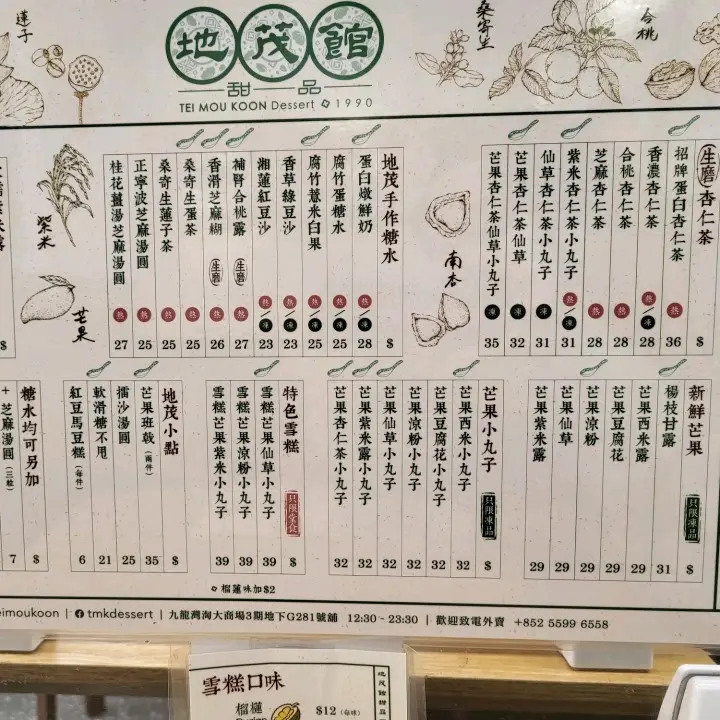 蓮子
地茂館
甜品
TEI MOU KOON Dessert 1990
桑寄生
合桃
紫米
芒果
南杏
生磨 杏仁茶 $
招牌蛋白杏仁茶 熱 36
香濃杏仁茶 熱/凍 28
合桃杏仁茶 熱 28
芝麻杏仁茶 熱 28
紫米杏仁茶小丸子 熱/凍 31
仙草杏仁茶小丸子 凍 31
芒果杏仁茶仙草 凍 32
芒果杏仁茶仙草小丸子 凍 35
地茂手作糖水 $
蛋白燉鮮奶 熱/凍 28
腐竹蛋糖水 熱/凍 25
腐竹薏米白果 熱/凍 25
香草綠豆沙 熱/凍 23
湘蓮紅豆沙 熱/凍 23
補腎合桃露 生磨 熱 27
香滑芝麻糊 生磨 熱 26
桑寄生蛋茶 熱 25
桑寄生蓮子茶 熱 25
正寧波芝麻湯圓 熱 25
桂花薑湯芝麻湯圓 熱 27
$
新鮮芒果 只限凍品 $
楊枝甘露 31
芒果西米露 29
芒果豆腐花 29
芒果涼粉 29
芒果仙草 29
芒果紫米露 29
芒果小丸子 只限凍品 $
芒果西米小丸子 32
芒果豆腐花小丸子 32
芒果涼粉小丸子 32
芒果仙草小丸子 32
芒果紫米露小丸子 32
芒果杏仁茶小丸子 32
特色雪糕 只限堂食 $
雪糕芒果仙草小丸子 39
雪糕芒果涼粉小丸子 39
雪糕芒果紫米小丸子 39
榴蓮味加$2
地茂小點 $
芒果班戟(兩件) 35
擂沙湯圓 25
軟滑糖不甩 21
紅豆馬豆糕(每件) 6
糖水均可另加 $
+芝麻湯圓(三粒) 7
eimoukoon | tmkdessert | 九龍灣淘大商場3期地下G281號舖 12:30 - 23:30 | 歡迎致電外賣 +852 5599 6558
雪糕口味
榴槤 $12(每球)
Durian
地茂館甜品